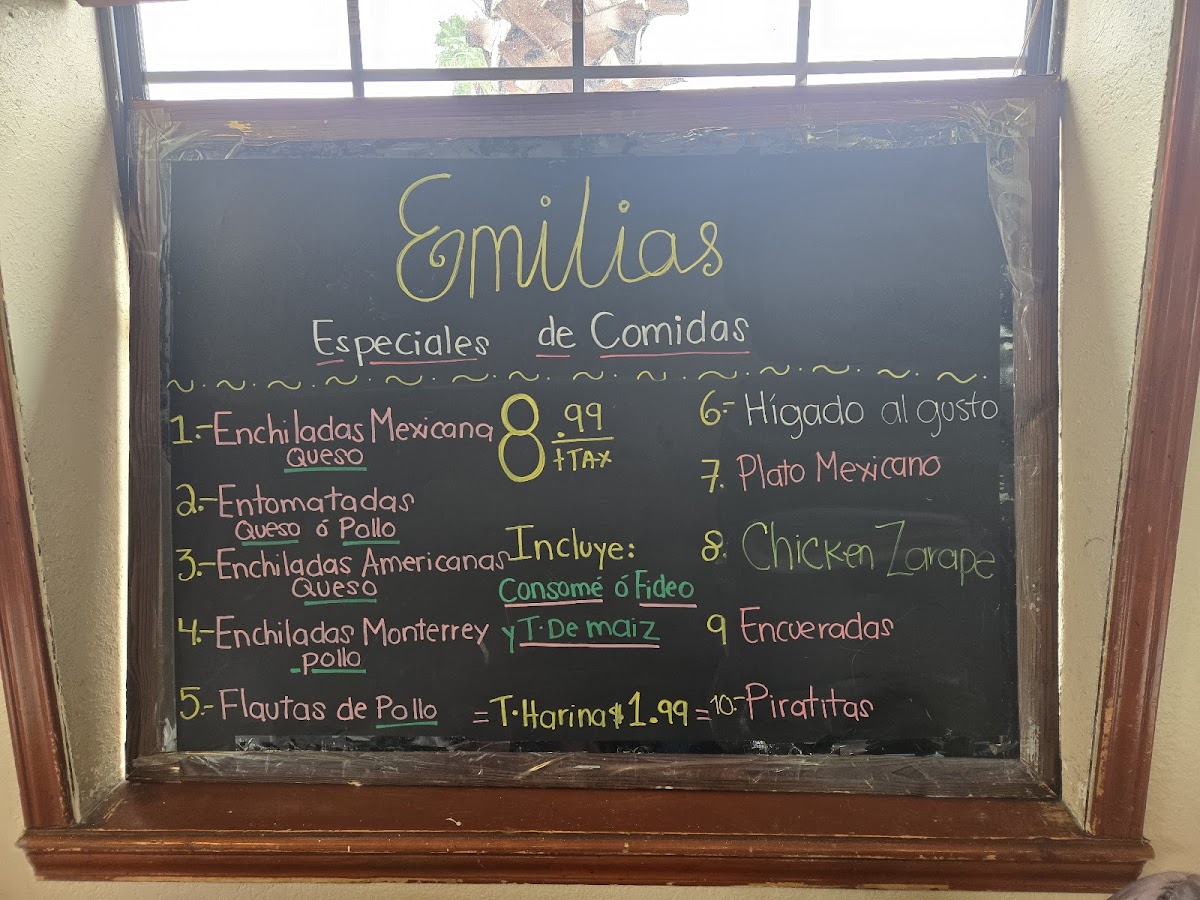 Emilias
Especiales de Comidas
1.- Enchiladas Mexicana
Queso
2.- Entomatadas
Queso ó Pollo
3.- Enchiladas Americanas
Queso
4.- Enchiladas Monterrey
-pollo
5.- Flautas de Pollo
8.99
+TAX
Incluye:
Consomé ó Fideo
y T. De maiz
=T.Harina $1.99=
6.- Hígado al gusto
7. Plato Mexicano
8. Chicken Zarape
9 Encueradas
10.- Piratitas